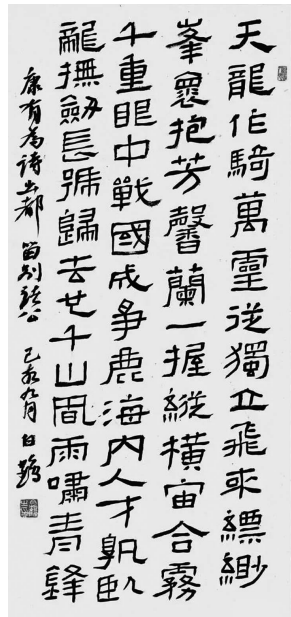 天龍作騎萬靈從獨立飛來縹緲
峯褱抱芳馨蘭一握縱橫宙合霧
千重眼中戰國成爭鹿海內人才孰臥
龍撫劍長號歸去也千山風雨嘯青鋒
康有為詩出都留別諸公 己亥九月 白鶴